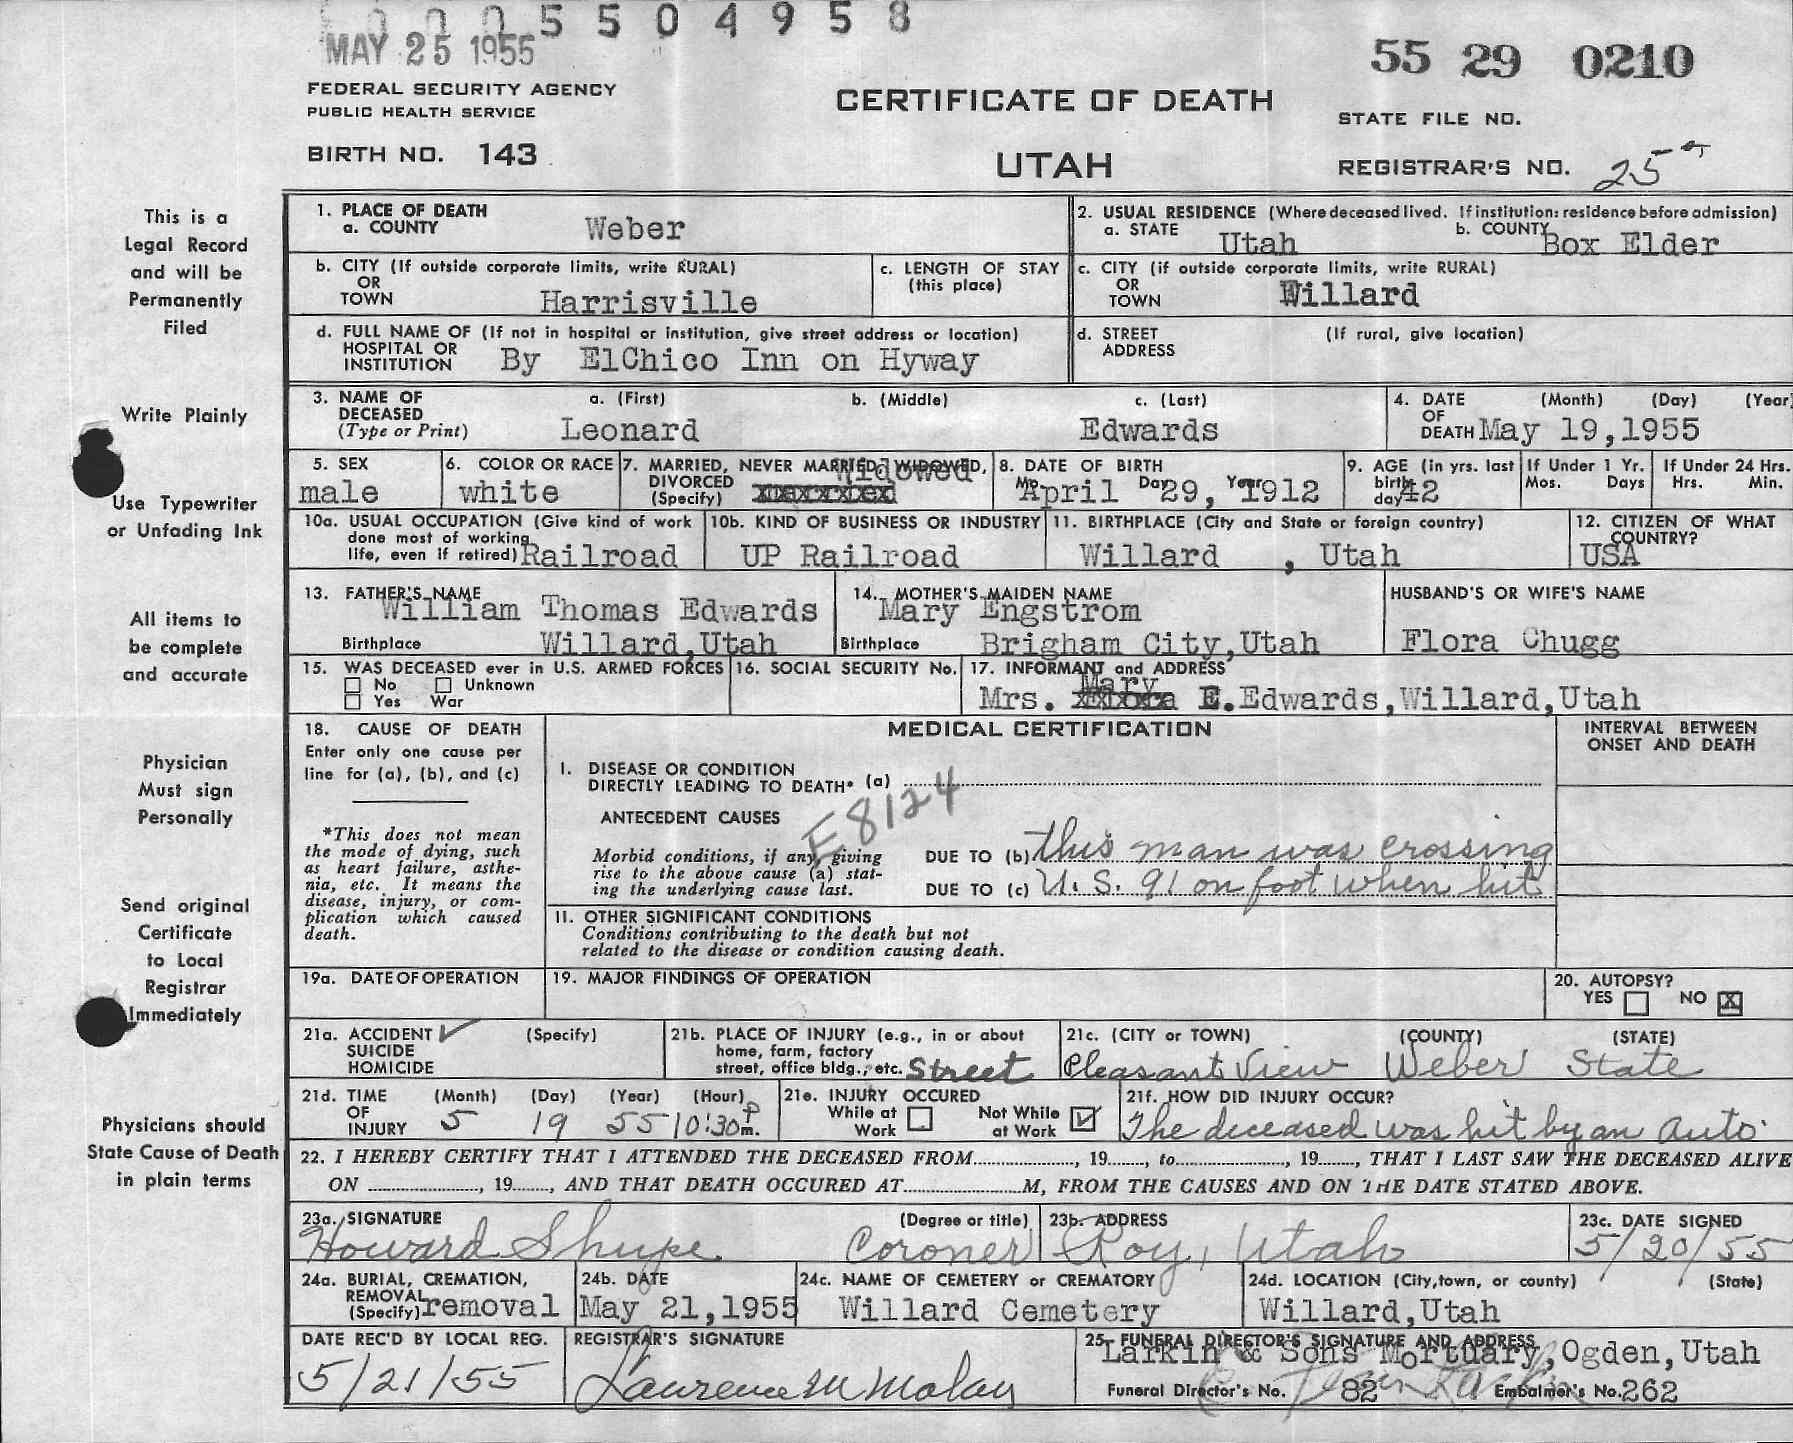 0 0 0 5 5 0 4 9 5 8
MAY 25 1955
55 29 0210
FEDERAL SECURITY AGENCY
PUBLIC HEALTH SERVICE
CERTIFICATE OF DEATH
STATE FILE NO.
BIRTH NO. 143
UTAH
REGISTRAR'S NO. 25
This is a
Legal Record
and will be
Permanently
Filed
Write Plainly
Use Typewriter
or Unfading Ink
All items to
be complete
and accurate
Physician
Must sign
Personally
Send original
Certificate
to Local
Registrar
Immediately
Physicians should
State Cause of Death
in plain terms
1. PLACE OF DEATH
a. COUNTY Weber
2. USUAL RESIDENCE (Where deceased lived. If institution: residence before admission)
a. STATE Utah b. COUNTY Box Elder
b. CITY (If outside corporate limits, write RURAL)
OR
TOWN Harrisville
c. LENGTH OF STAY
(this place)
c. CITY (if outside corporate limits, write RURAL)
OR
TOWN Willard
d. FULL NAME OF (If not in hospital or institution, give street address or location)
HOSPITAL OR
INSTITUTION By ElChico Inn on Hyway
d. STREET (If rural, give location)
ADDRESS
3. NAME OF a. (First) b. (Middle) c. (Last)
DECEASED
(Type or Print) Leonard Edwards
4. DATE (Month) (Day) (Year)
OF
DEATH May 19,1955
5. SEX
male
6. COLOR OR RACE
white
7. MARRIED, NEVER MARRIED, WIDOWED,
DIVORCED Widowed
(Specify)
8. DATE OF BIRTH
Mo. Day Year
April 29, 1912
9. AGE (in yrs. last
birth
day 42
If Under 1 Yr.
Mos. Days
If Under 24 Hrs.
Hrs. Min.
10a. USUAL OCCUPATION (Give kind of work
done most of working
life, even if retired) Railroad
10b. KIND OF BUSINESS OR INDUSTRY
UP Railroad
11. BIRTHPLACE (City and State or foreign country)
Willard , Utah
12. CITIZEN OF WHAT
COUNTRY?
USA
13. FATHER'S NAME
William Thomas Edwards
Birthplace Willard,Utah
14. MOTHER'S MAIDEN NAME
Mary Engstrom
Birthplace Brigham City,Utah
HUSBAND'S OR WIFE'S NAME
Flora Chugg
15. WAS DECEASED ever in U.S. ARMED FORCES
No Unknown
Yes War
16. SOCIAL SECURITY No.
17. INFORMANT and ADDRESS
Mary
Mrs. E.Edwards,Willard,Utah
18. CAUSE OF DEATH
Enter only one cause per
line for (a), (b), and (c)
*This does not mean
the mode of dying, such
as heart failure, asthe-
nia, etc. It means the
disease, injury, or com-
plication which caused
death.
MEDICAL CERTIFICATION
INTERVAL BETWEEN
ONSET AND DEATH
I. DISEASE OR CONDITION
DIRECTLY LEADING TO DEATH* (a)
E8124
ANTECEDENT CAUSES
Morbid conditions, if any, giving
rise to the above cause (a) stat-
ing the underlying cause last.
DUE TO (b) this man was crossing
DUE TO (c) U.S. 91 on foot when hit
II. OTHER SIGNIFICANT CONDITIONS
Conditions contributing to the death but not
related to the disease or condition causing death.
19a. DATE OF OPERATION
19. MAJOR FINDINGS OF OPERATION
20. AUTOPSY?
YES NO X
21a. ACCIDENT ✓ (Specify)
SUICIDE
HOMICIDE
21b. PLACE OF INJURY (e.g., in or about
home, farm, factory
street, office bldg., etc. Street
21c. (CITY or TOWN) (COUNTY) (STATE)
Pleasant View Weber State
21d. TIME (Month) (Day) (Year) (Hour)
OF
INJURY 5 19 55 10:30 P m.
21e. INJURY OCCURED
While at Not While
Work at Work ✓
21f. HOW DID INJURY OCCUR?
The deceased was hit by an Auto.
22. I HEREBY CERTIFY THAT I ATTENDED THE DECEASED FROM..................., 19......., to...................., 19......, THAT I LAST SAW THE DECEASED ALIVE
ON ...................., 19......., AND THAT DEATH OCCURED AT.....................M, FROM THE CAUSES AND ON THE DATE STATED ABOVE.
23a. SIGNATURE (Degree or title)
Howard Shupe Coroner
23b. ADDRESS
Roy, Utah
23c. DATE SIGNED
5/20/55
24a. BURIAL, CREMATION,
REMOVAL
(Specify) removal
24b. DATE
May 21,1955
24c. NAME OF CEMETERY or CREMATORY
Willard Cemetery
24d. LOCATION (City,town, or county) (State)
Willard,Utah
DATE REC'D BY LOCAL REG.
5/21/55
REGISTRAR'S SIGNATURE
Laurence M Malan
25. FUNERAL DIRECTOR'S SIGNATURE AND ADDRESS
Larkin & Sons Mortuary,Ogden,Utah
Funeral Director's No. 82 Embalmer's No. 262